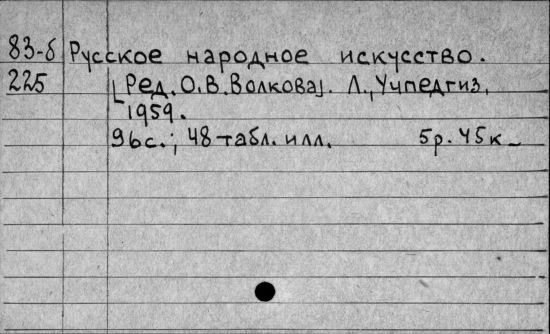 83-б Русское народное искусство.
225 [Ред. О.В. Волкова]. Л., Учпедгиз,
1959.
96с.; 48 табл. илл. 5р. 45к_